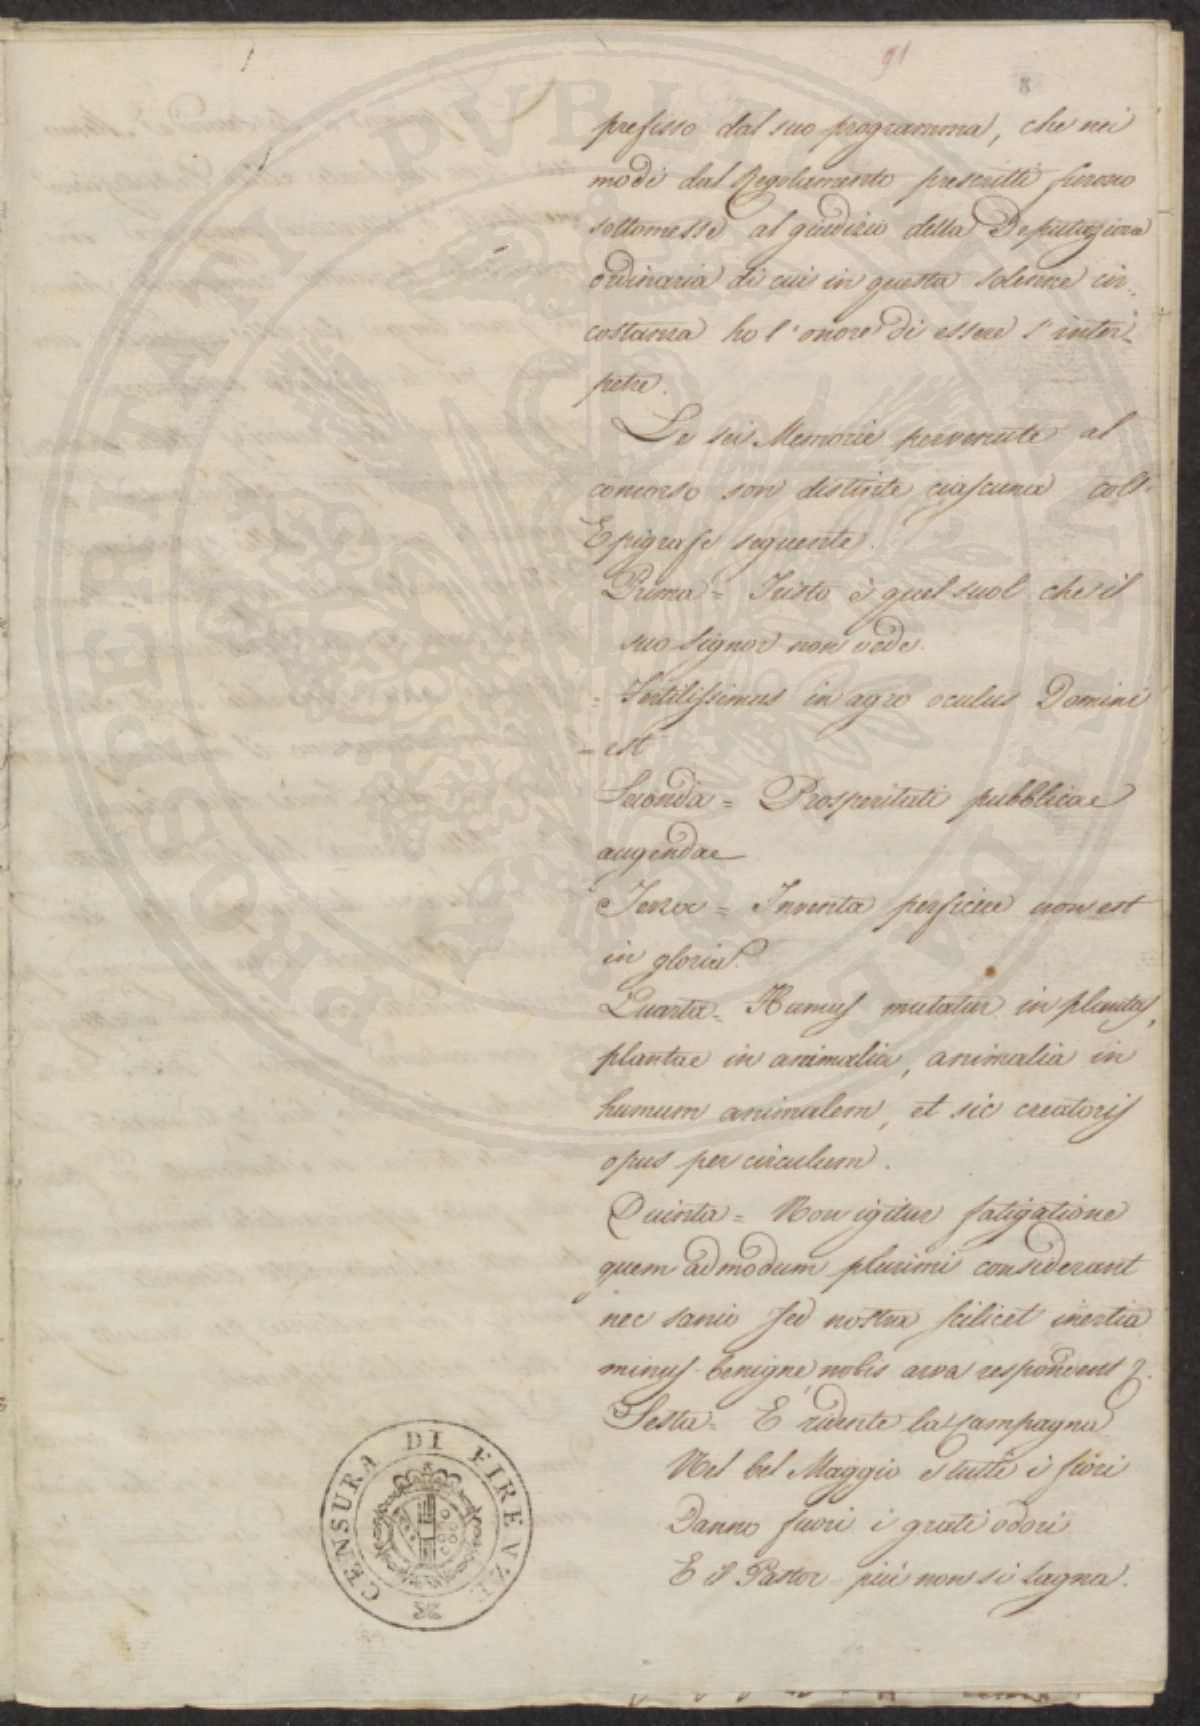 91
8
prefisso dal suo programma, che nei
modi dal Regolamento prescritti furono
sottomesse al giudizio della Deputazione
ordinaria di cui in questa solenne cir-
costanza ho l'onore di essere l'inter-
petre.
Le sei Memorie pervenute al
concorso son distinte ciascuna coll'
Epigrafe seguente.
Prima = Tristo è quel suol che il
suo signor non vede.
= Fertilissimus in agro oculus Domini
= est
Seconda = Prosperitati pubblicae
augendae
Terza = Inventa perficere non est
in gloria.
Quarta = Humus mutatur in plantas,
plantae in animalia, animalia in
humum animalem, et sic creatoris
opus per circulum.
Quinta = Non igitur fatigatione
quem admodum plurimi considerant
nec sanio sed nostra scilicet inertia
minus benigne nobis arva respondent
Sesta = E' ridente la campagna
Nel bel Maggio e tutti i fiori
Danno fuori i grati odori
E il Pastor più non si lagna.
CENSURA DI FIRENZE
PROSPERITATI PUBLICAE AUGENDAE